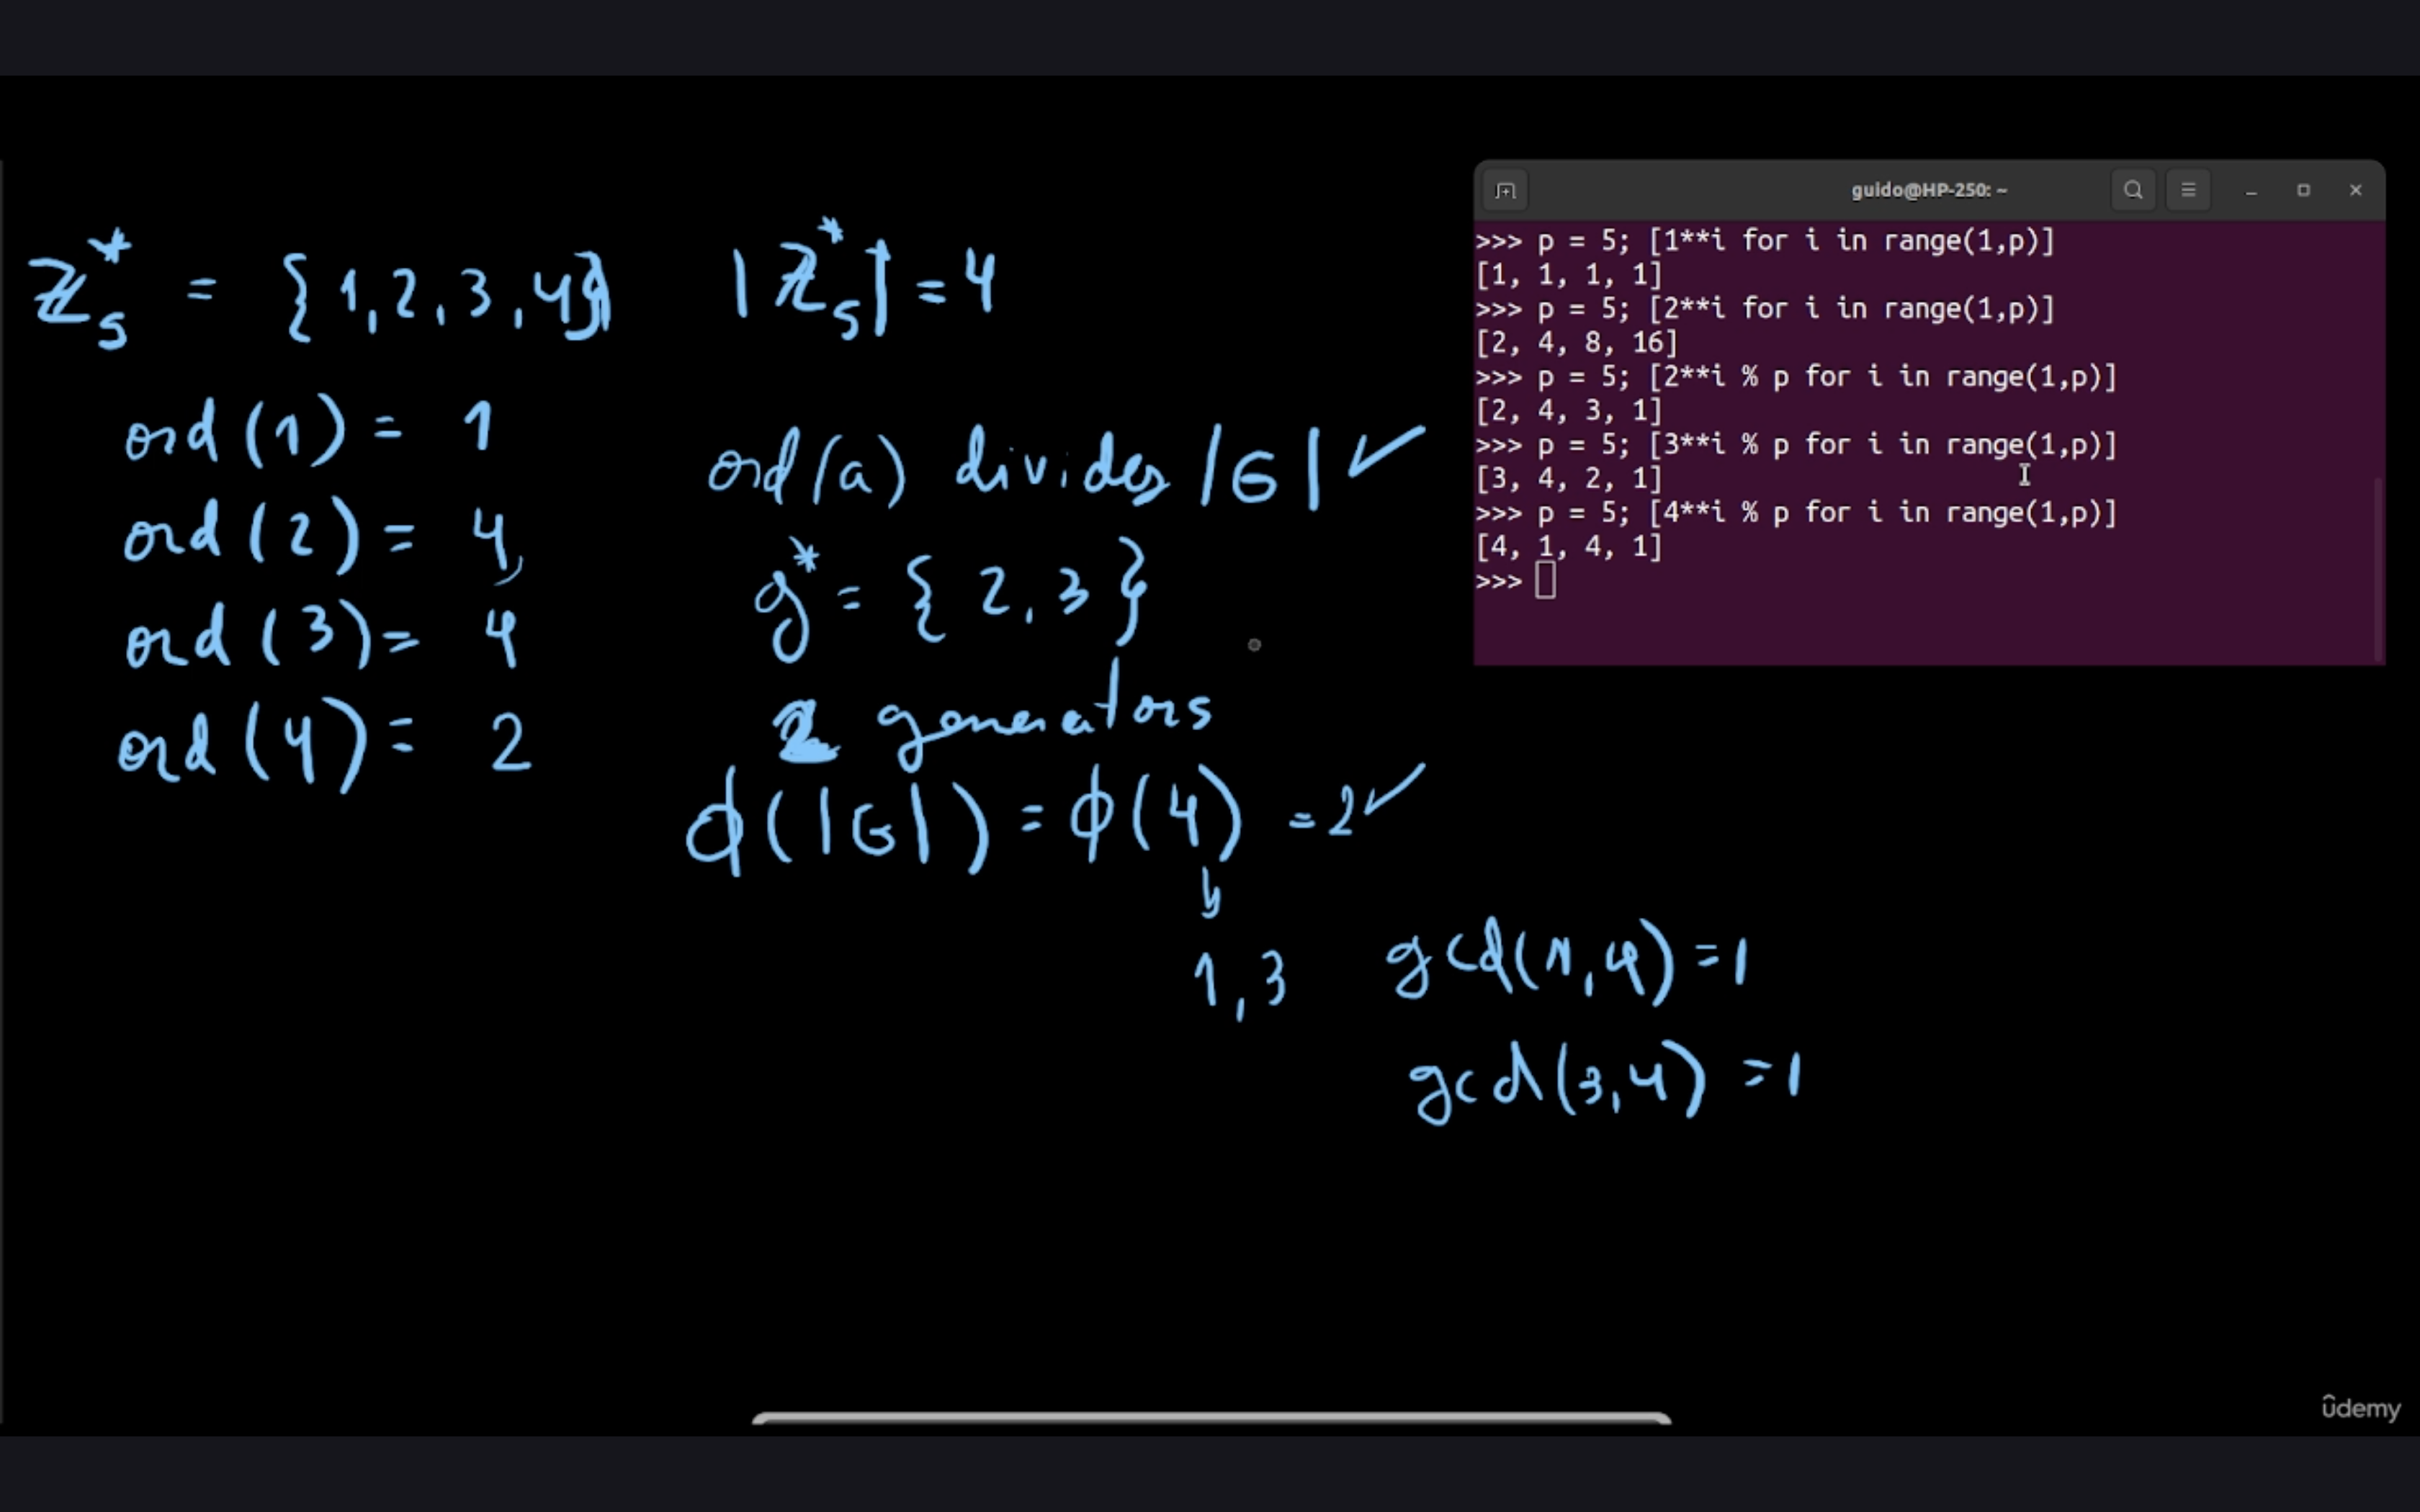 ℤ₅* = {1,2,3,4}
|ℤ₅*| = 4
ord(1) = 1
ord(2) = 4
ord(3) = 4
ord(4) = 2
ord(a) divides |G| ✓
g* = {2,3}
2 generators
ϕ(|G|) = ϕ(4) = 2 ✓
1,3
gcd(1,4) = 1
gcd(3,4) = 1
guido@HP-250: ~
>>> p = 5; [1**i for i in range(1,p)]
[1, 1, 1, 1]
>>> p = 5; [2**i for i in range(1,p)]
[2, 4, 8, 16]
>>> p = 5; [2**i % p for i in range(1,p)]
[2, 4, 3, 1]
>>> p = 5; [3**i % p for i in range(1,p)]
[3, 4, 2, 1]
>>> p = 5; [4**i % p for i in range(1,p)]
[4, 1, 4, 1]
>>>
ûdemy